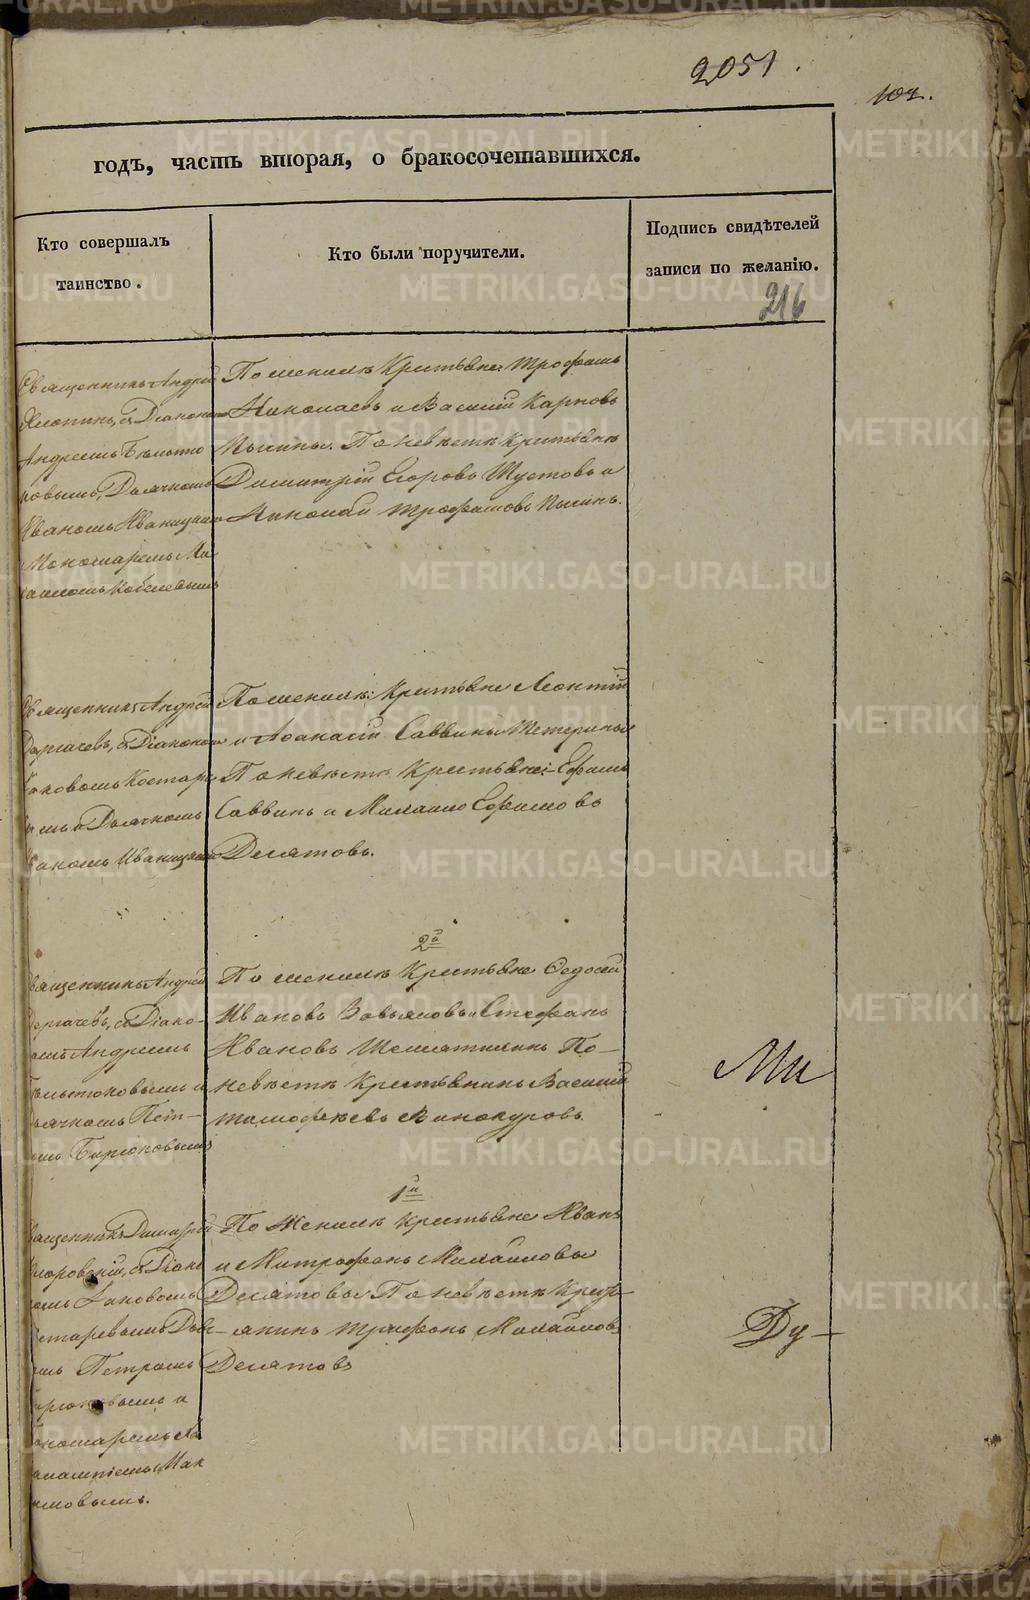 2051.
102.
годъ, часть вторая, о бракосочетавшихся.
Кто совершалъ
таинство.
Кто были поручители.
Подпись свидѣтелей
записи по желанію.
216
Священникъ Андрей
съ Діакономъ
Андреемъ
Дьячкомъ
Иваномъ Иваницкимъ
Пономаремъ Ми
По женихѣ Крестьяне Трофимъ
Николаевъ и Василій Карповъ
По невѣстѣ Крестьяне
Димитрій Егоровъ Шустовъ и
Николай Трофимовъ
Священникъ Андрей
Дергачевъ, съ Діакономъ
Яковомъ Костаре
вымъ и Дьячкомъ
Иваномъ Иваницкимъ
По женихѣ: Крестьяне Леонтій
и Аѳанасій Саввины Тетерины
По невѣстѣ Крестьяне: Ефимъ
Саввинъ и Михаило Ефимовъ
Десятовъ.
2й
Священникъ Андрей
Дергачевъ, съ Діако-
номъ Андреемъ
и
Дьячкомъ Пет-
ромъ Бирюковымъ
По женихѣ Крестьяне Ѳедосій
Ивановъ Завьяловъ и Стефанъ
Ивановъ По-
невѣстѣ Крестьянинъ Василій
Тимофеевъ Винокуровъ
Ми
1й
съ Діако
номъ Яковомъ
Костаревымъ Дьяч-
комъ Петромъ
Бирюковымъ и
Пономаремъ
Мак
симовымъ.
По Женихѣ Крестьяне Иванъ
и Митрофанъ Михайловы
Десятовы По невѣстѣ Крест-
янинъ Трифонъ Михайловъ
Десятовъ
Ду-
METRIKI.GASO-URAL.RU